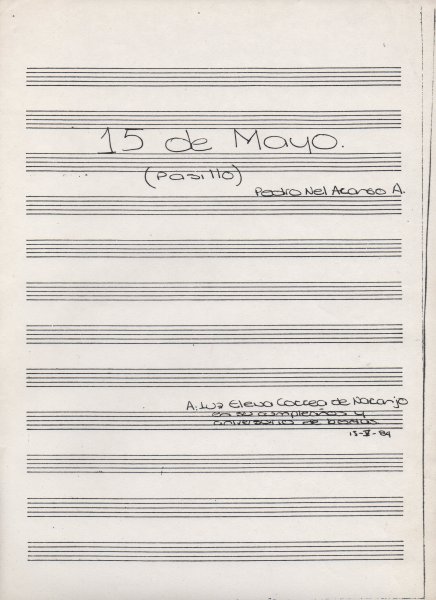 15 de Mayo.
(Pasillo)
Pedro Nel Arango A.
A. Luz Elena Correa de Naranjo
en su cumpleaños y
aniversario de bodas.
15-V-84